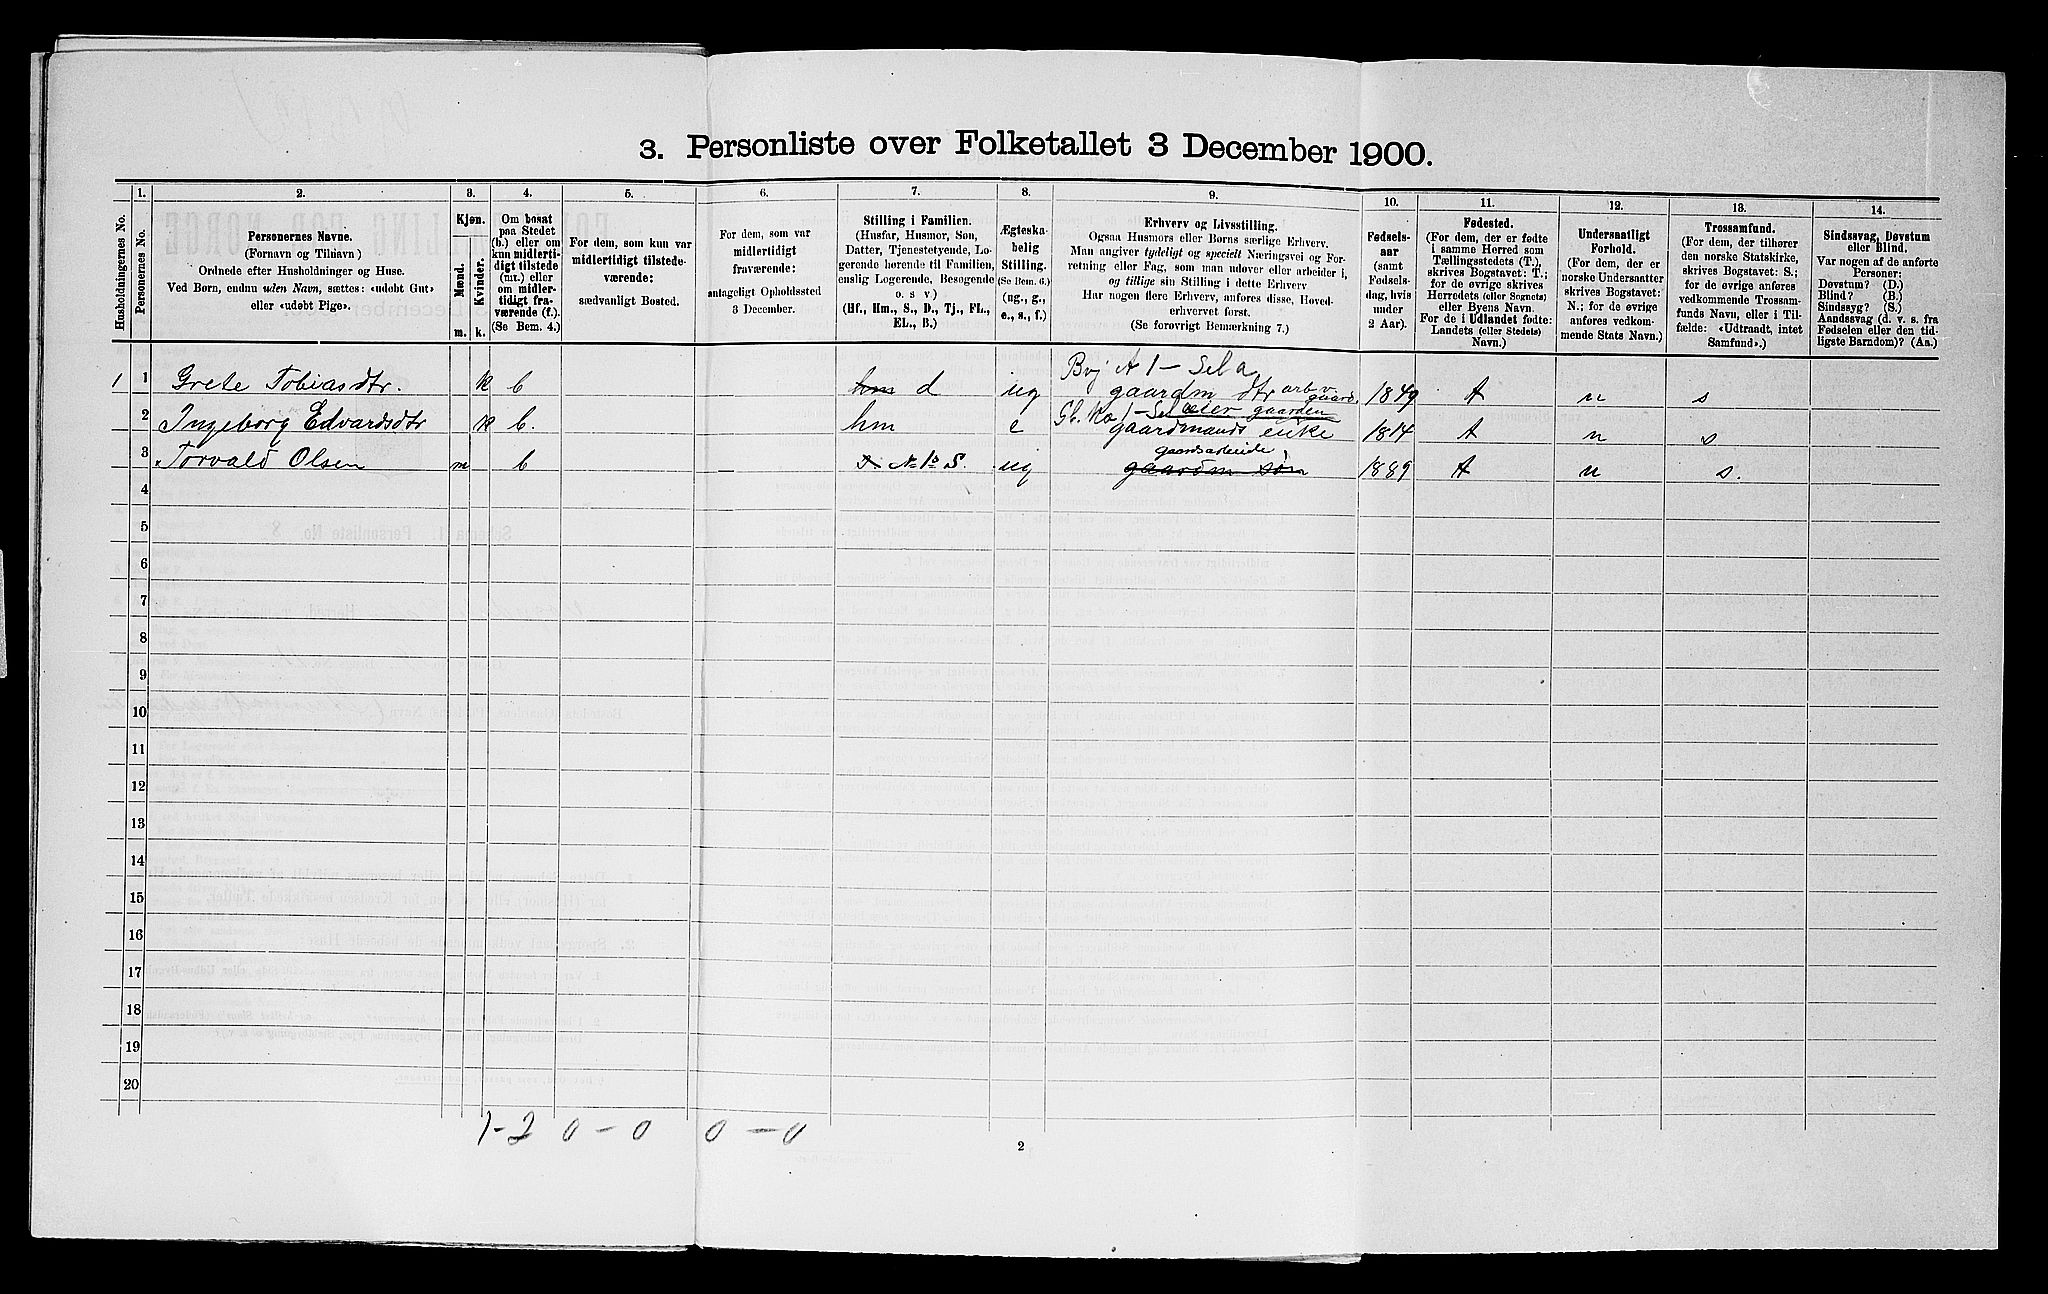 3. Personliste over Folketallet 3 December 1900.
Husholdningernes No.
1.
Personernes No.
2.
Personernes Navne.
(Fornavn og Tilnavn)
Ordnede efter Husholdninger og Huse.
Ved Børn, endnu uden Navn, sættes: «udøbt Gut»
eller «udøbt Pige».
3.
Kjøn.
Mænd.
Kvinder.
m.
k.
4.
Om bosat
paa Stedet
(b.) eller om
kun midlerti-
digt tilstede
(mt.) eller
om midler-
tidigt fra-
værende (f.)
(Se Bem. 4.)
5.
For dem, som kun var
midlertidigt tilstede-
værende:
sædvanligt Bosted.
6.
For dem, som var
midlertidigt
fraværende:
antageligt Opholdssted
3 December.
7.
Stilling i Familien.
(Husfar, Husmor, Søn,
Datter, Tjenestetyende, Lo-
gerende hørende til Familien,
enslig Logerende, Besøgende
o. s. v.)
(Hf., Hm., S., D., Tj., FL.,
EL., B.)
8.
Ægteska-
belig
Stilling.
(Se Bem. 6.)
(ug., g.,
e., s., f.)
9.
Erhverv og Livsstilling.
Ogsaa Husmors eller Børns særlige Erhverv.
Man angiver tydeligt og specielt Næringsvei og For-
retning eller Fag, som man udøver eller arbeider i,
og tillige sin Stilling i dette Erhverv
Har nogen flere Erhverv, anføres disse, Hoved-
erhvervet først.
(Se forøvrigt Bemerkning 7.)
10.
Fødsels-
aar
(samt
Fødsels-
dag, hvis
under
2 Aar).
11.
Fødested.
(For dem, der er fødte
i samme Herred som
Tællingsstedets (T.),
skrives Bogstavet: T.;
for de øvrige skrives
Herredets (eller Sognets)
eller Byens Navn.
For de i Udlandet fødte:
Landets (eller Stedets)
Navn.)
12.
Undersaatligt
Forhold.
(For dem, der er
norske Undersaatter
skrives Bogstavet:
N.; for de øvrige
anføres vedkom-
mende Stats Navn.)
13.
Trossamfund.
(For dem, der tilhører
den norske Statskirke,
skrives Bogstavet: S.;
for de øvrige anføres
vedkommende Trossam-
funds Navn, eller i Til-
fælde: «Udtraadt, intet
Samfund».)
14.
Sindssvag, Døvstum
eller Blind.
Var nogen af de anførte
Personer:
Døvstum? (D.)
Blind? (B.)
Sindssyg? (S.)
Aandssvag (d. v. s. fra
Fødselen eller den tid-
ligste Barndom)? (Aa.)
1 1 Grete Tobiasdtr. k b hm d ug gaardm dtr arb v. gaard. 1849 n s
2 Ingeborg Edvardsdtr k b. hm e eier gaarden gaardmands enke 1814 n s
3 Torvald Olsen m b — No 1s S. ug gaardsarbeide gaardm søn 1889 n s.
4
5
6
7
8
9
10
11
12
13
14
15
16
17
18
19
20
1-2 0-0 0-0
2